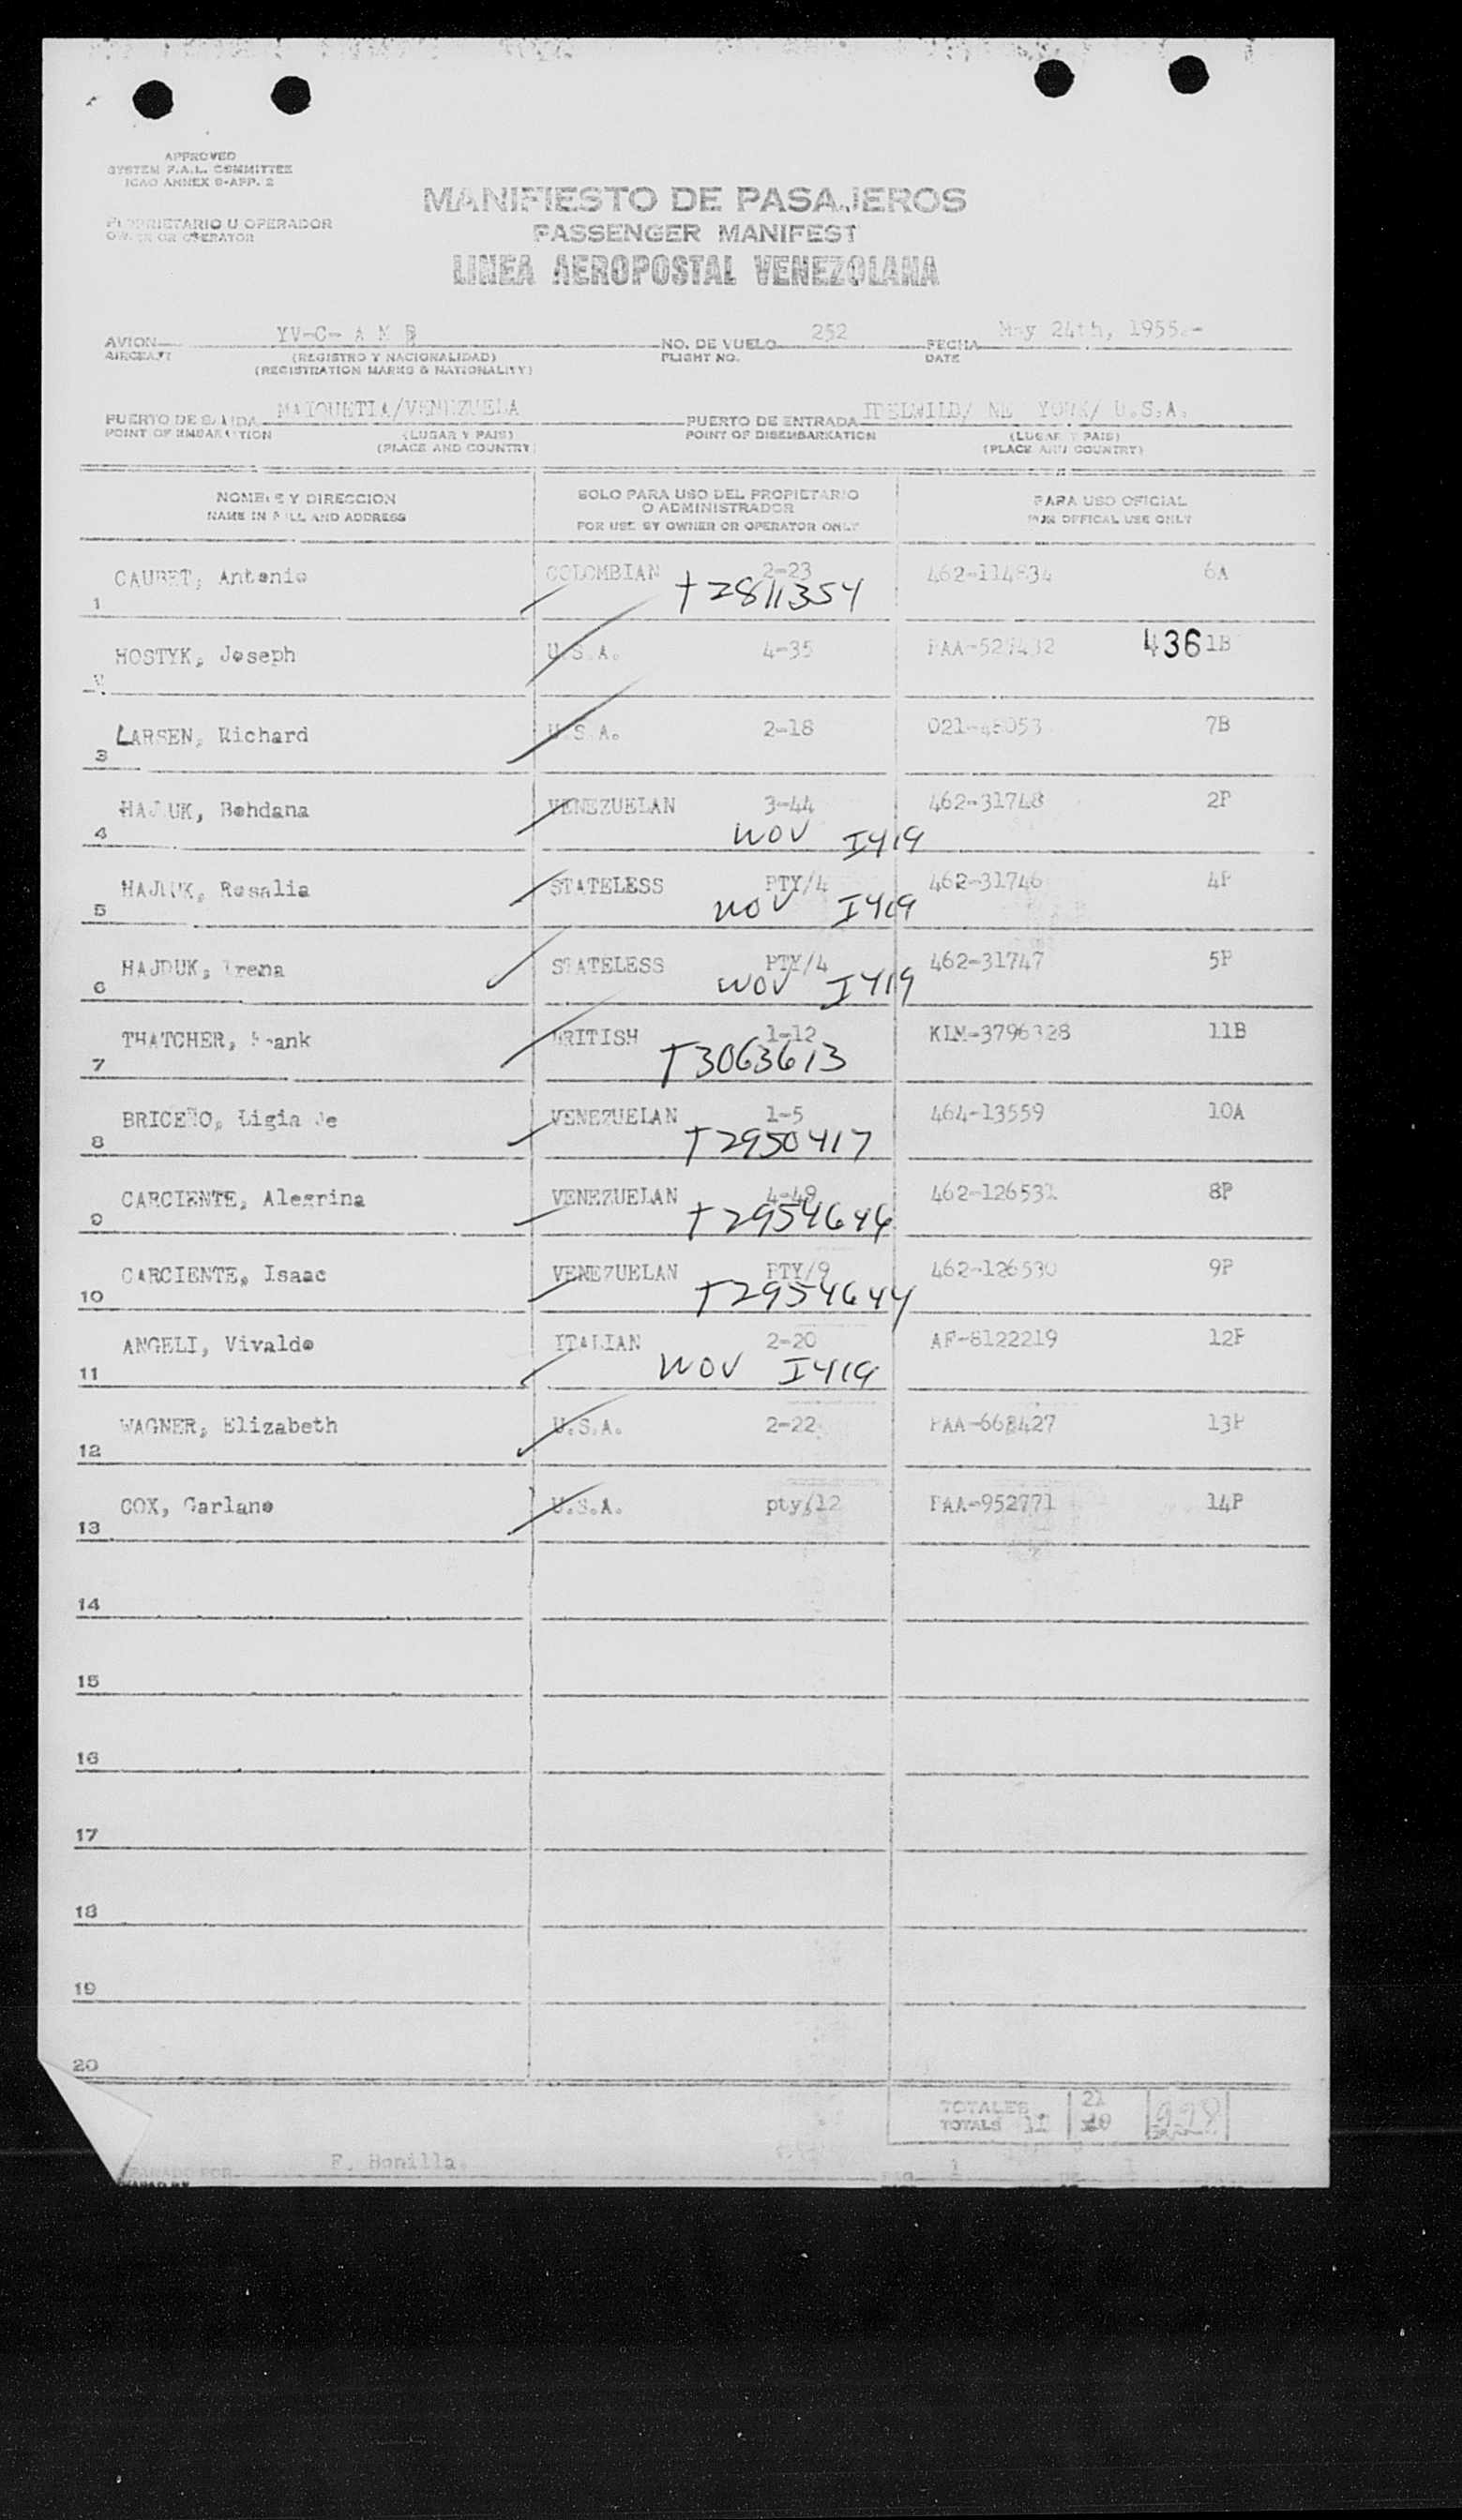 APPROVED
SYSTEM F.A.L. COMMITTEE
ICAO ANNEX 9-APP. 2
PROPRIETARIO U OPERADOR
OWNER OR OPERATOR
MANIFIESTO DE PASAJEROS
PASSENGER MANIFEST
LINEA AEROPOSTAL VENEZOLANA
AVION YV-C- A M B NO. DE VUELO 252 FECHA May 24th, 1955.-
AIRCRAFT (REGISTRO Y NACIONALIDAD) FLIGHT NO. DATE
(REGISTRATION MARKS & NATIONALITY)
PUERTO DE SALIDA MAIQUETIA/VENEZUELA PUERTO DE ENTRADA IDELWILD/ NE YORK/ U.S.A.
POINT OF EMBARKATION (LUGAR Y PAIS) POINT OF DISEMBARKATION (LUGAR Y PAIS)
(PLACE AND COUNTRY) (PLACE AND COUNTRY)
NOMBRE Y DIRECCION SOLO PARA USO DEL PROPIETARIO PARA USO OFICIAL
NAME IN FULL AND ADDRESS O ADMINISTRADOR FOR OFFICAL USE ONLY
FOR USE BY OWNER OR OPERATOR ONLY
CAUBET, Antonio COLOMBIAN 2-23 462-114834 6A
1 T2811354
HOSTYK, Joseph U.S.A. 4-35 PAA-527432 436 1B
LARSEN, Richard U.S.A. 2-18 021-48053 7B
3
HAJ UK, Bohdana VENEZUELAN 3-44 462-31748 2P
4 WOV I419
HAJDUK, Rosalia STATELESS PTY/4 462-31746 4P
5 WOV I419
HAJDUK, Irena STATELESS PTY/4 462-31747 5P
6 WOV I419
THATCHER, Frank BRITISH 1-12 KLM-3796328 11B
7 T3063613
BRICEÑO, Ligia de VENEZUELAN 1-5 464-13559 10A
8 T2950417
CARCIENTE, Alegrina VENEZUELAN 4-49 462-126531 8P
9 T2954646
CARCIENTE, Isaac VENEZUELAN PTY/9 462-126530 9P
10 T2954644
ANGELI, Vivaldo ITALIAN 2-20 AF-8122219 12P
11 WOV I419
WAGNER, Elizabeth U.S.A. 2-22 PAA-668427 13P
12
COX, Garlano U.S.A. pty/12 PAA-952771 14P
13
14
15
16
17
18
19
20
TOTALES 21
TOTALS 11
F. Bonilla.
PAG. 1 DE 1